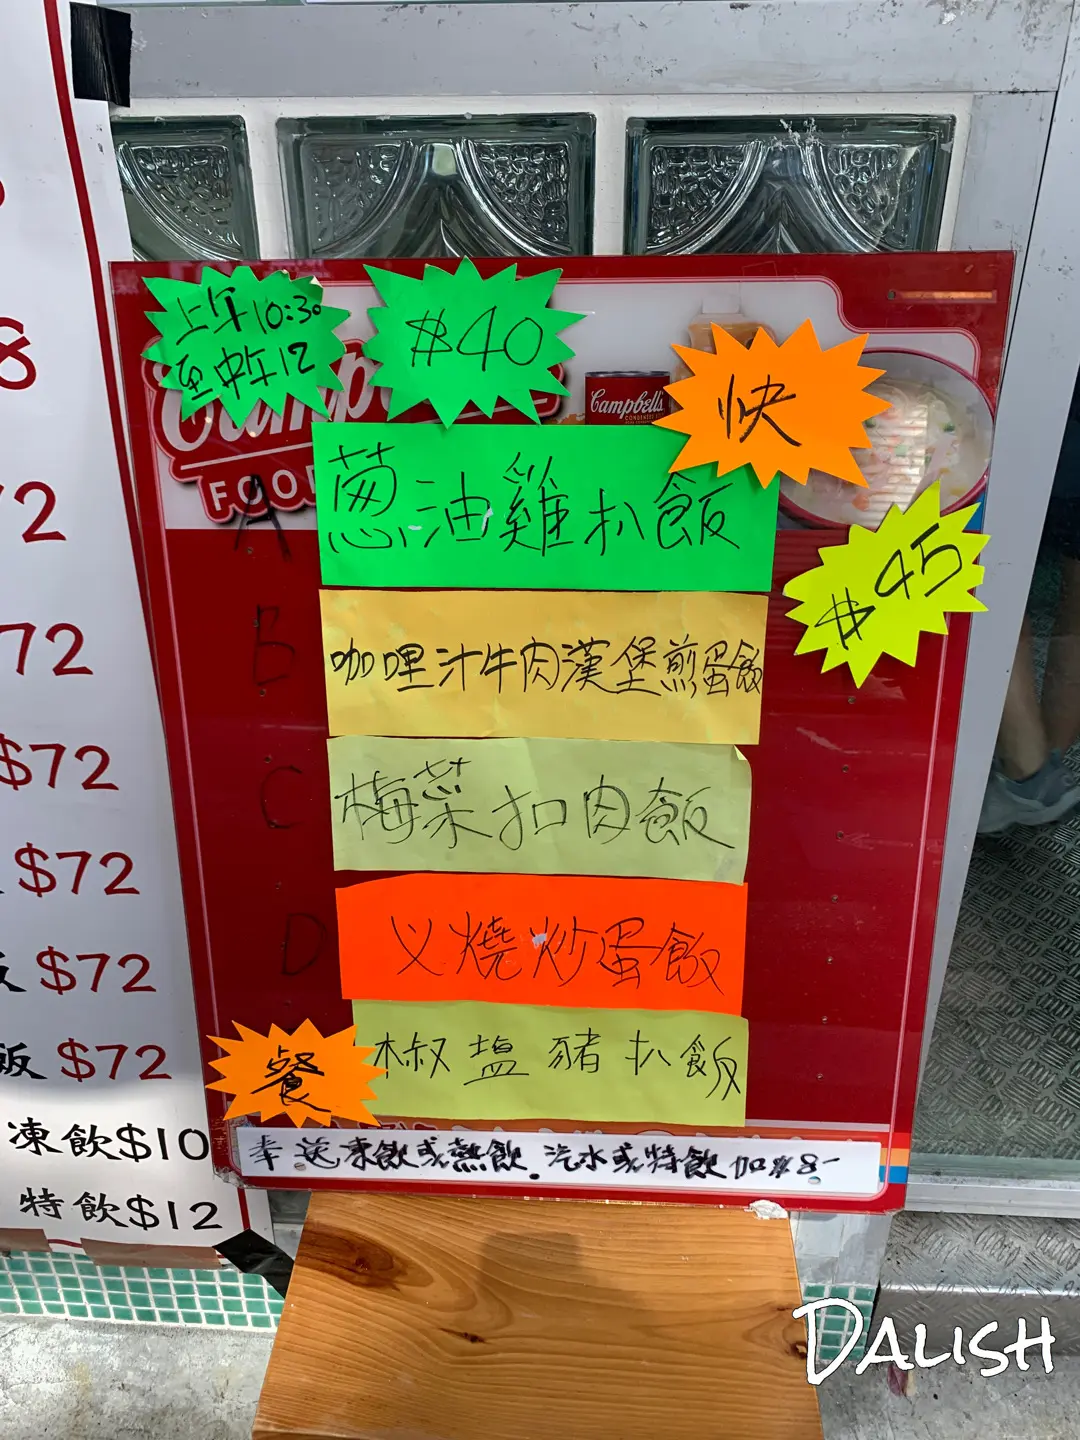 上午10:30
至中午12
$40
快
Campbell's
CONDENSED
FOO
$45
A 葱油雞扒飯
B 咖哩汁牛肉漢堡煎蛋飯
C 梅菜扣肉飯
D 叉燒炒蛋飯
餐
椒塩豬扒飯
奉送凍飲或熱飲. 汽水或特飲加$8-
8
72
72
$72
$72
飯 $72
飯 $72
凍飲$10
特飲$12
DALISH